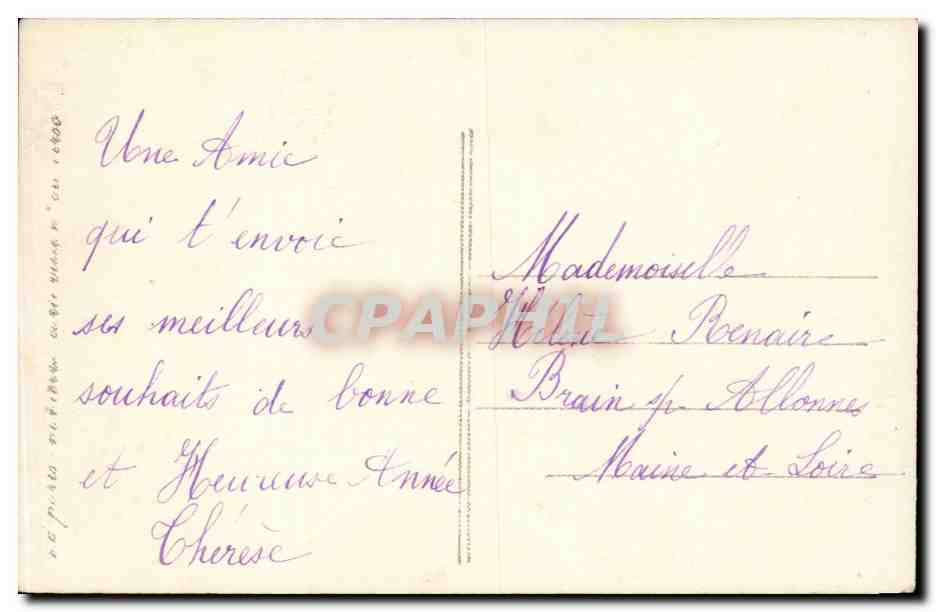 Une Amie
qui t'envoie
ses meilleurs
souhaits de bonne
et Heureuse Année
Thérèse
Mademoiselle
Renaire
Brain s/. Allonnes
Maine et Loire
CPAPHIL